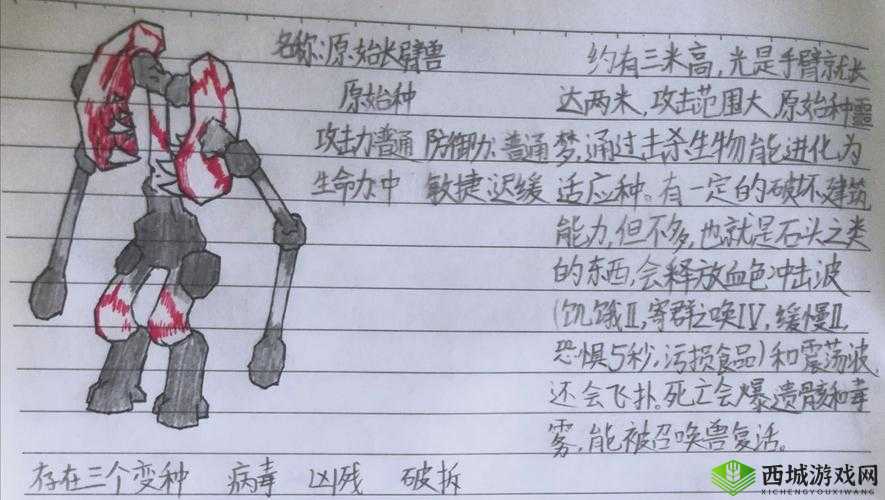 名称:原始长臂兽
原始种
攻击力普通 防御力:普通
生命力中 敏捷迟缓
约有三米高,光是手臂就长
达两米,攻击范围大,原始种噩
梦,通过击杀生物能进化为
适应种。有一定的破坏建筑
能力,但不多,也就是石头之类
的东西,会释放血色冲击波
(饥饿Ⅱ,寄群之唤Ⅳ,缓慢Ⅱ,
恐惧5秒,污损食品)和震荡波
还会飞扑。死亡会爆遗骸和毒
雾,能被召唤兽复活。
存在三个变种 病毒 凶残 破拆
西城游戏网
XICHENGYOUXIWANG